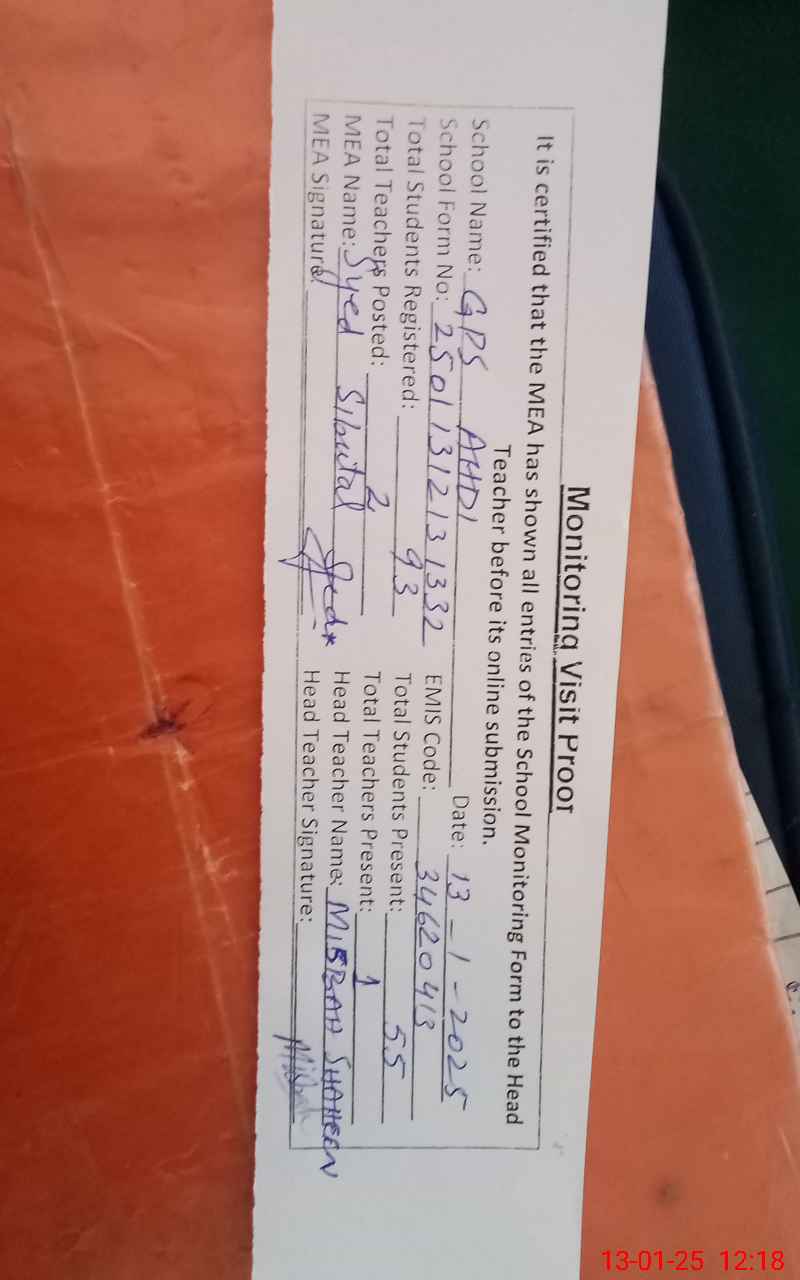 Monitoring Visit Proof
It is certified that the MEA has shown all entries of the School Monitoring Form to the Head
Teacher before its online submission.
School Name: GPS AHDI Date: 13-1-2025
School Form No: 25011312131332 EMIS Code: 34620413
Total Students Registered: 93 Total Students Present: 55
Total Teachers Posted: 2 Total Teachers Present: 1
MEA Name: Syed Sibutal Head Teacher Name: MISBAH SHAHEEN
MEA Signature: Head Teacher Signature: Misbah
13-01-25 12:18